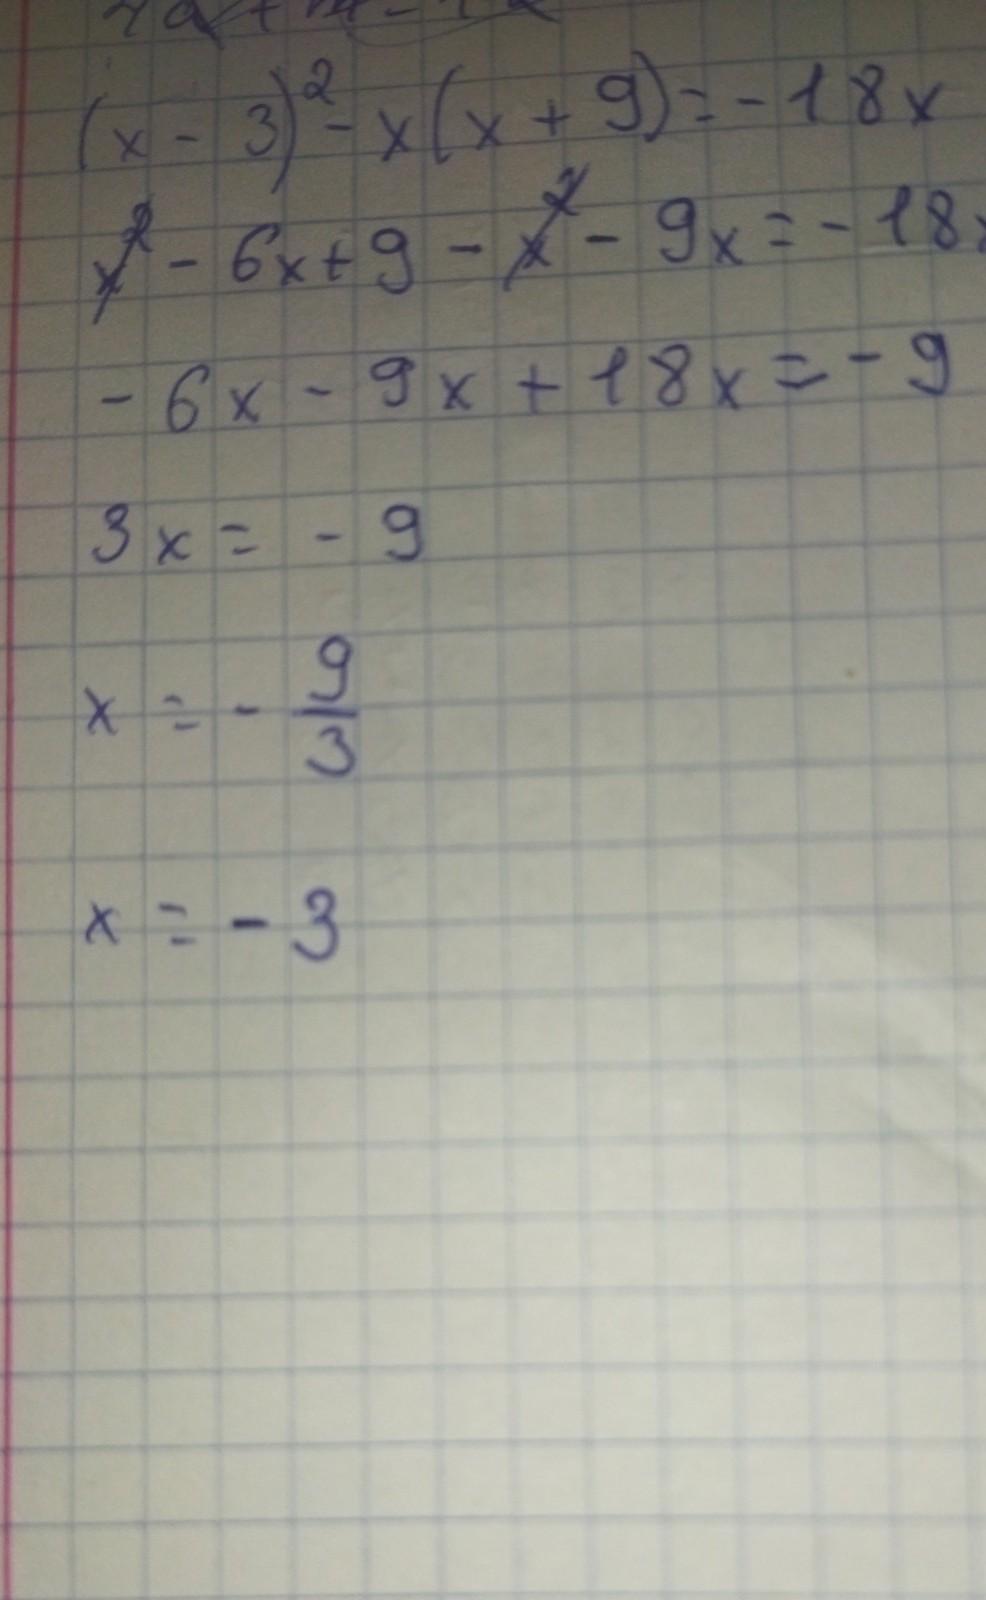 (x - 3)² - x(x + 9) = - 18x
x² - 6x + 9 - x² - 9x = - 18x
- 6x - 9x + 18x = - 9
3x = - 9
x = - 9/3
x = - 3